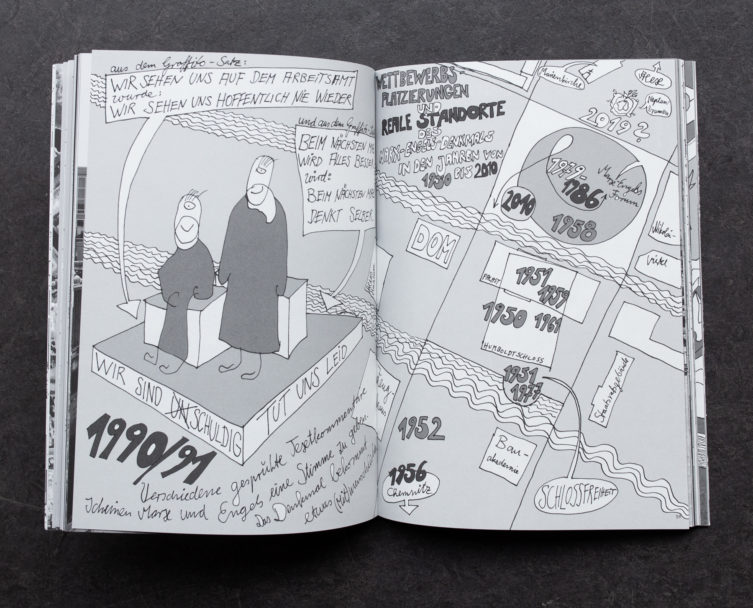 aus dem Graffito-Satz:
WIR SEHEN UNS AUF DEM ARBEITSAMT
wurde:
WIR SEHEN UNS HOFFENTLICH NIE WIEDER
und aus dem Graffito-
BEIM NÄCHSTEN
WIRD ALLES
wird:
BEIM NÄCHSTEN
DENKT SELBER
WIR SIND UNSCHULDIG
TUT UNS LEID
1990/91
Verschiedene gesprühte Textkommentare
scheinen Marx und Engels eine Stimme zu geben.
Das Denkmal bekommt
etwas
WETTBEWERBS-
PLATZIERUNGEN
UND
REALE STANDORTE
DES
MARX-ENGELS-DENKMALS
IN DEN JAHREN VON
1950 BIS 2010
Marienkirche
2019?
1986
Marx Engels
Forum
2010
1958
DOM
Nikolai-
viertel
1951
1959
1950
1961
HUMBOLDTSCHLOSS
1951
1977
Staatsratsgebäude
1952
Bau-
akademie
1956
Chemnitz
SCHLOSSFREIHEIT